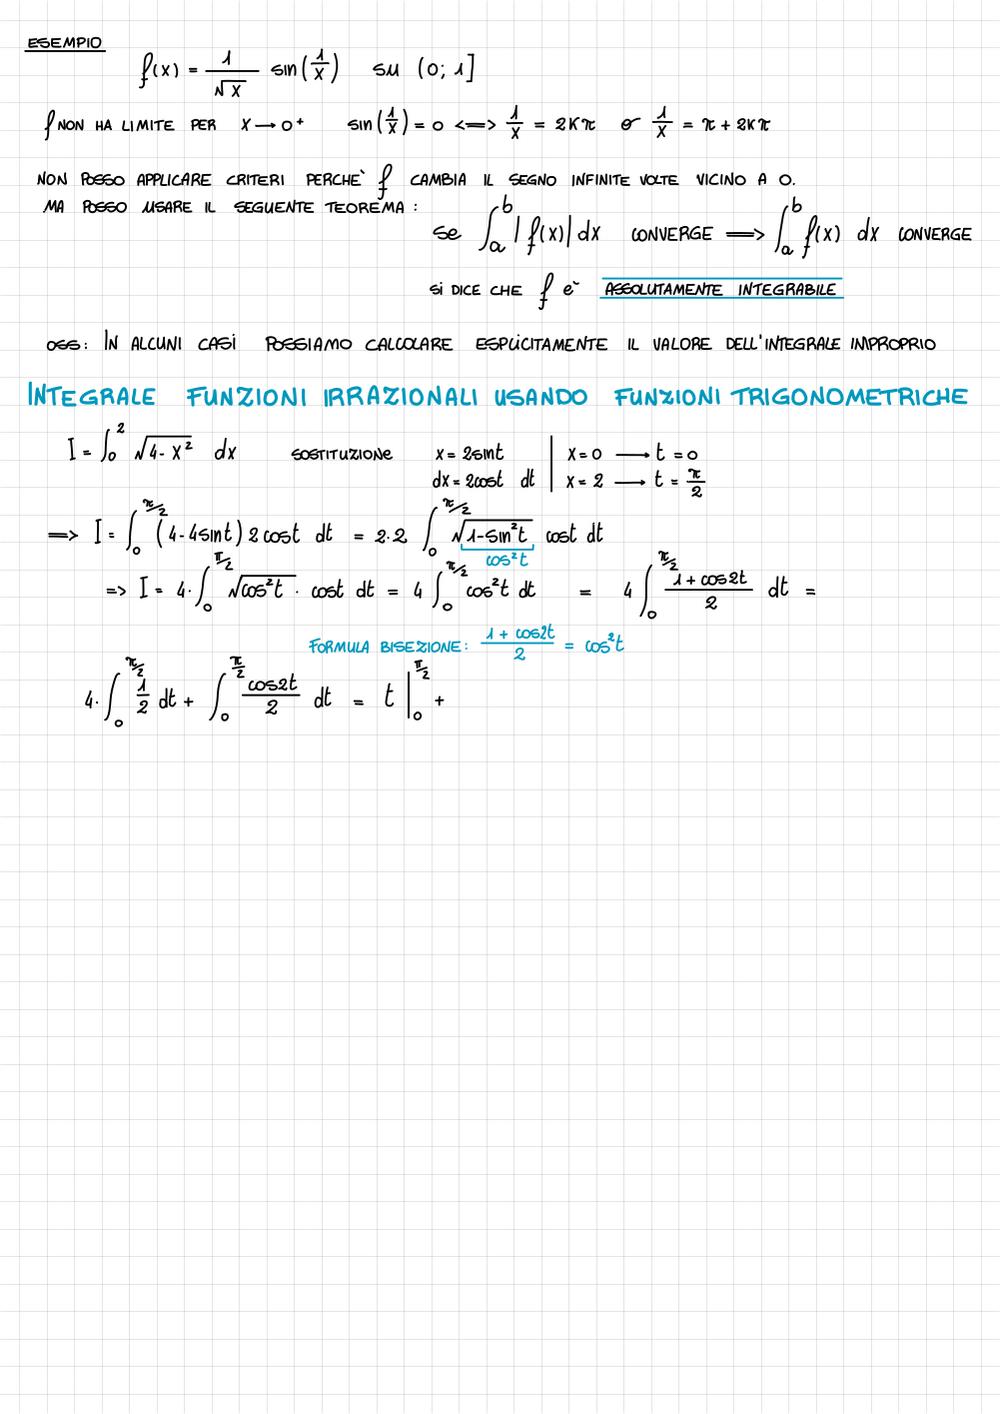 ESEMPIO
f(x) = 1/√x sin(1/x) su (0; 1]
f NON HA LIMITE PER x → 0⁺ sin(1/x) = 0 <=> 1/x = 2Kπ o 1/x = π + 2Kπ
NON POSSO APPLICARE CRITERI PERCHE` f CAMBIA IL SEGNO INFINITE VOLTE VICINO A 0.
MA POSSO USARE IL SEGUENTE TEOREMA :
se ∫_a^b |f(x)| dx CONVERGE => ∫_a^b f(x) dx CONVERGE
SI DICE CHE f e` ASSOLUTAMENTE INTEGRABILE
OSS: IN ALCUNI CASI POSSIAMO CALCOLARE ESPLICITAMENTE IL VALORE DELL'INTEGRALE IMPROPRIO
INTEGRALE FUNZIONI IRRAZIONALI USANDO FUNZIONI TRIGONOMETRICHE
I = ∫_0^2 √(4-x²) dx SOSTITUZIONE x = 2sint | x = 0 → t = 0
dx = 2cost dt | x = 2 → t = π/2
=> I = ∫_0^{π/2} (4-4sint) 2 cost dt = 2·2 ∫_0^{π/2} √(1-sin²t) cost dt
cos²t
=> I = 4·∫_0^{π/2} √(cos²t) · cost dt = 4 ∫_0^{π/2} cos²t dt = 4 ∫_0^{π/2} (1+cos2t)/2 dt =
FORMULA BISEZIONE: (1+cos2t)/2 = cos²t
4·∫_0^{π/2} 1/2 dt + ∫_0^{π/2} cos2t/2 dt = t |_0^{π/2} +